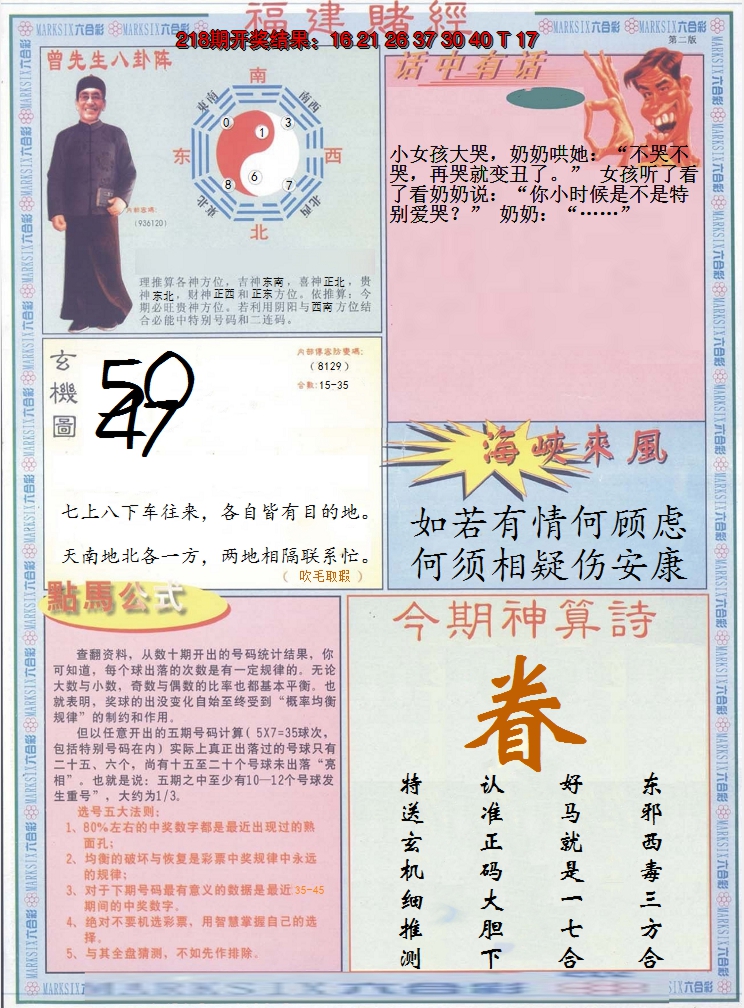 福建賭經
218期开奖结果：16 21 26 37 30 40 T 17
MARKSIX六合彩
第二版
曾先生八卦阵
南
東南
南西
0
1
3
东
西
8
6
7
東北
北西
北
内部密碼：
（936120）
理推算各神方位，吉神东南，喜神正北，贵
神东北，财神正西和正东方位。依推算：今
期必旺贵神方位。若利用阴阳与西南方位结
合必能中特别号码和二连码。
话中有话
小女孩大哭，奶奶哄她：“不哭不
哭，再哭就变丑了。” 女孩听了看
了看奶奶说：“你小时候是不是特
别爱哭？” 奶奶：“……”
玄機圖
内部傳密防變碼：
（8129）
合数：15-35
50
47
七上八下车往来，各自皆有目的地。
天南地北各一方，两地相隔联系忙。
（ 吹毛取瑕 ）
海峽來風
如若有情何顾虑
何须相疑伤安康
點馬公式
查翻资料，从数十期开出的号码统计结果，你
可知道，每个球出落的次数是有一定规律的。无论
大数与小数，奇数与偶数的比率也都基本平衡。也
就表明，奖球的出没变化自始至终受到“概率均衡
规律”的制约和作用。
但以任意开出的五期号码计算（5X7=35球次，
包括特别号码在内）实际上真正出落过的号球只有
二十五、六个，尚有十五至二十个号球未出落“亮
相”。也就是说：五期之中至少有10—12个号球发
生重号”，大约为1/3。
选号五大法则：
1、80%左右的中奖数字都是最近出现过的熟
面孔；
2、均衡的破坏与恢复是彩票中奖规律中永远
的规律；
3、对于下期号码最有意义的数据是最近35-45
期间的中奖数字。
4、绝对不要机选彩票，用智慧掌握自己的选
择。
5、与其全盘猜测，不如先作排除。
今期神算詩
眷
东邪西毒三方合
好马就是一七合
认准正码大胆下
特送玄机细推测